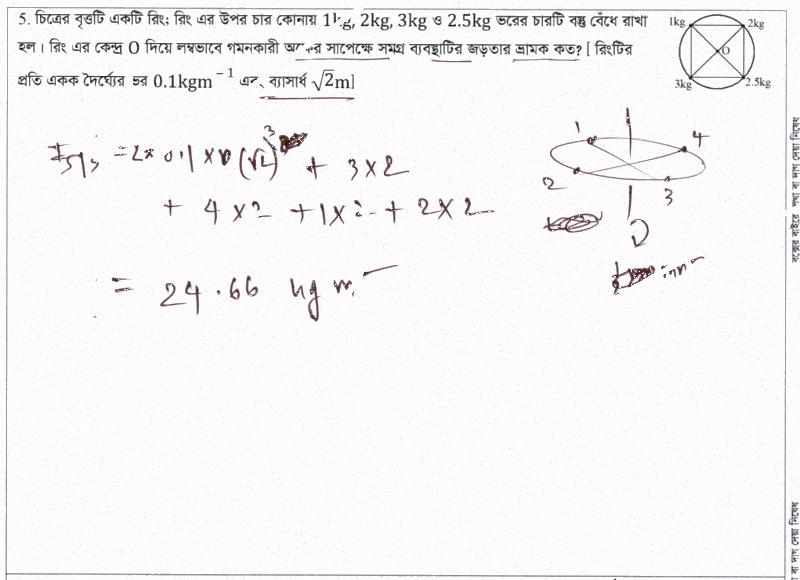 5. চিত্রের বৃত্তটি একটি রিং; রিং এর উপর চার কোনায় 1kg, 2kg, 3kg ও 2.5kg ভরের চারটি বস্তু বেঁধে রাখা
হল। রিং এর কেন্দ্র O দিয়ে লম্বভাবে গমনকারী অক্ষের সাপেক্ষে সমগ্র ব্যবস্থাটির জড়তার ভ্রামক কত? [ রিংটির
প্রতি একক দৈর্ঘ্যের ভর 0.1kgm⁻¹ এবং ব্যাসার্ধ √2m]
1kg 2kg
O
3kg 2.5kg
= 2π 0.1 × (√2)³ + 3×2
+ 4×2 + 1×2 + 2×2
= 24.66 kg m²
1 4
2 3
বক্সের বাইরে লেখা বা দাগ দেয়া নিষেধ
বা দাগ দেয়া নিষেধ